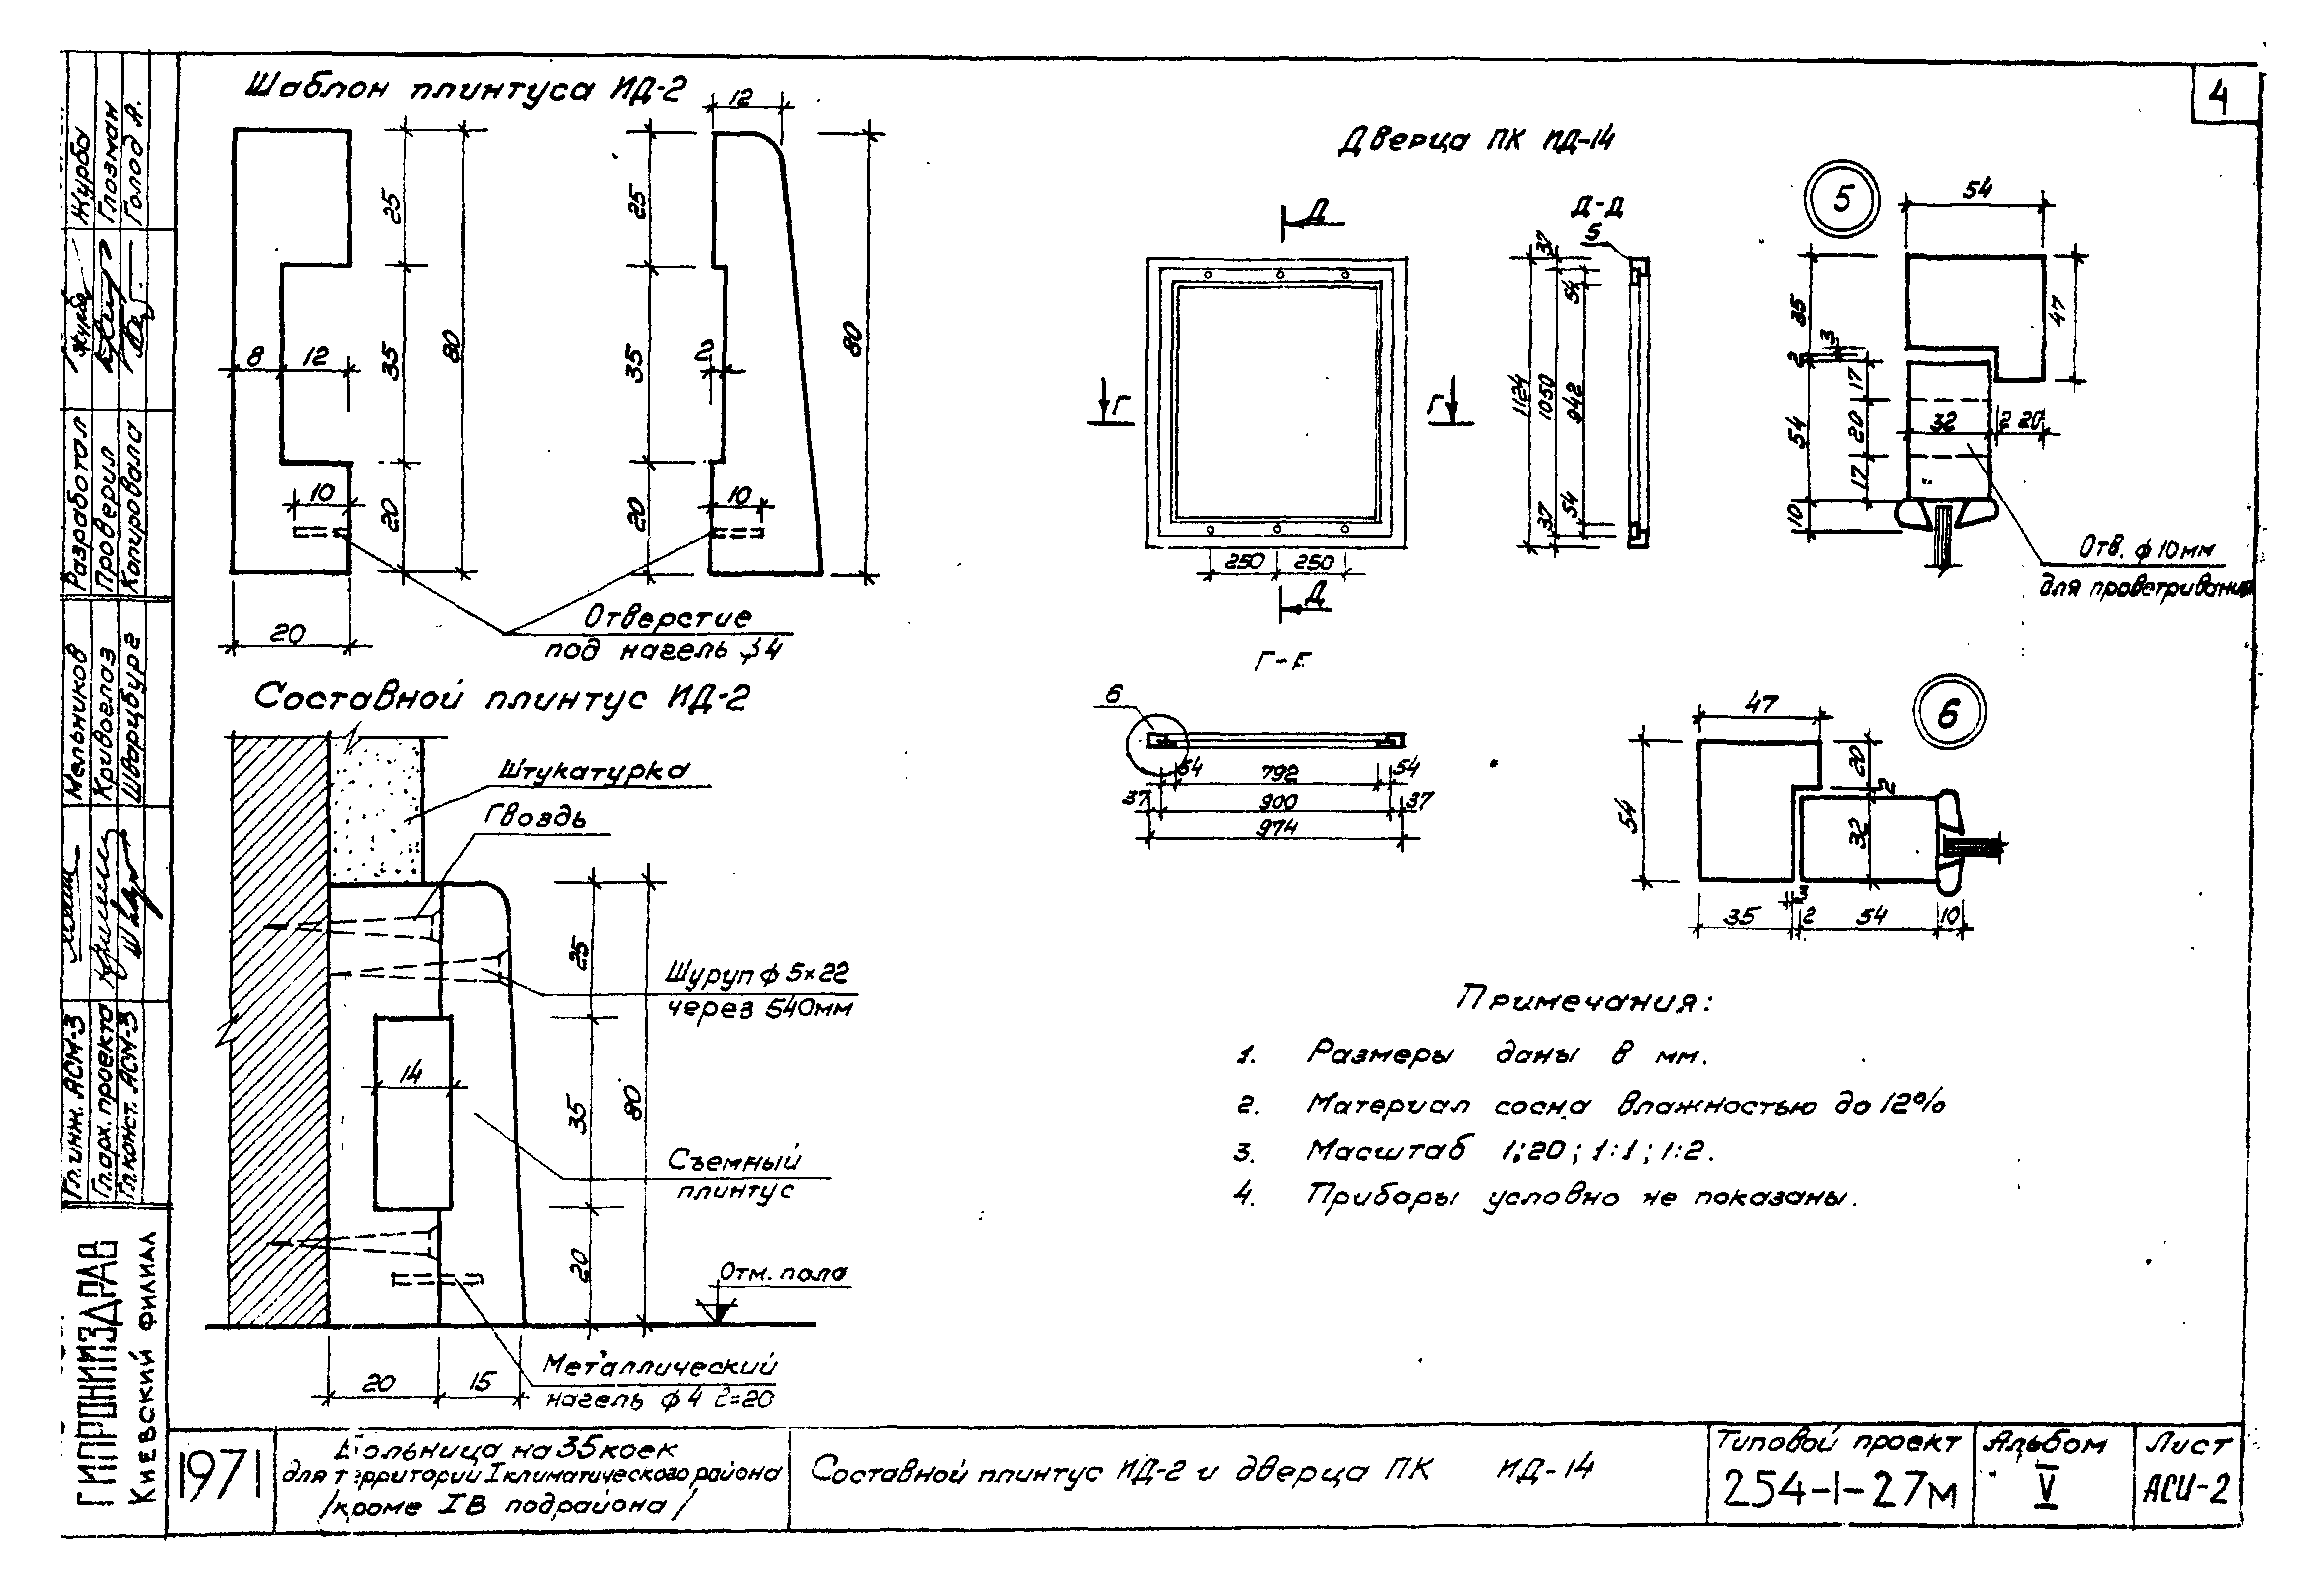 4
Шаблон плинтуса ИД-2
12
25
35
20
80
8
12
10
20
25
35
20
2
10
80
Отверстие
под нагель ϕ4
Составной плинтус ИД-2
Штукатурка
Гвоздь
Шуруп ϕ 5×22
через 540мм
14
25
35
20
80
Съемный
плинтус
Отм. пола
Металлический
нагель ϕ4 ℓ=20
20
15
Дверца ПК ИД-14
Д
Д
Г
Г
250
250
Д-Д
5
37
54
1124
1050
942
54
37
Г-Г
6
54
792
54
37
900
37
974
5
54
35
47
3
2
17
54
20
32
2
20
17
10
Отв. ϕ 10мм
для проветривания
6
47
54
20
2
32
3
35
2
54
10
Примечания:
1. Размеры даны в мм.
2. Материал сосна влажностью до 12%
3. Масштаб 1:20; 1:1; 1:2.
4. Приборы условно не показаны.
Журба
Глозман
Голод А.
Разработал
Проверил
Копировала
Мельников
Кривоглаз
Шварцбург
Гл. инж. АСМ-3
Гл. арх. проекта
Гл. конст. АСМ-3
ГИПРОНИИЗДРАВ
Киевский филиал
1971
Больница на 35 коек
для территории I климатического района
/кроме IВ подрайона/
Составной плинтус ИД-2 и дверца ПК ИД-14
Типовой проект
254-1-27м
Альбом
V
Лист
АСИ-2